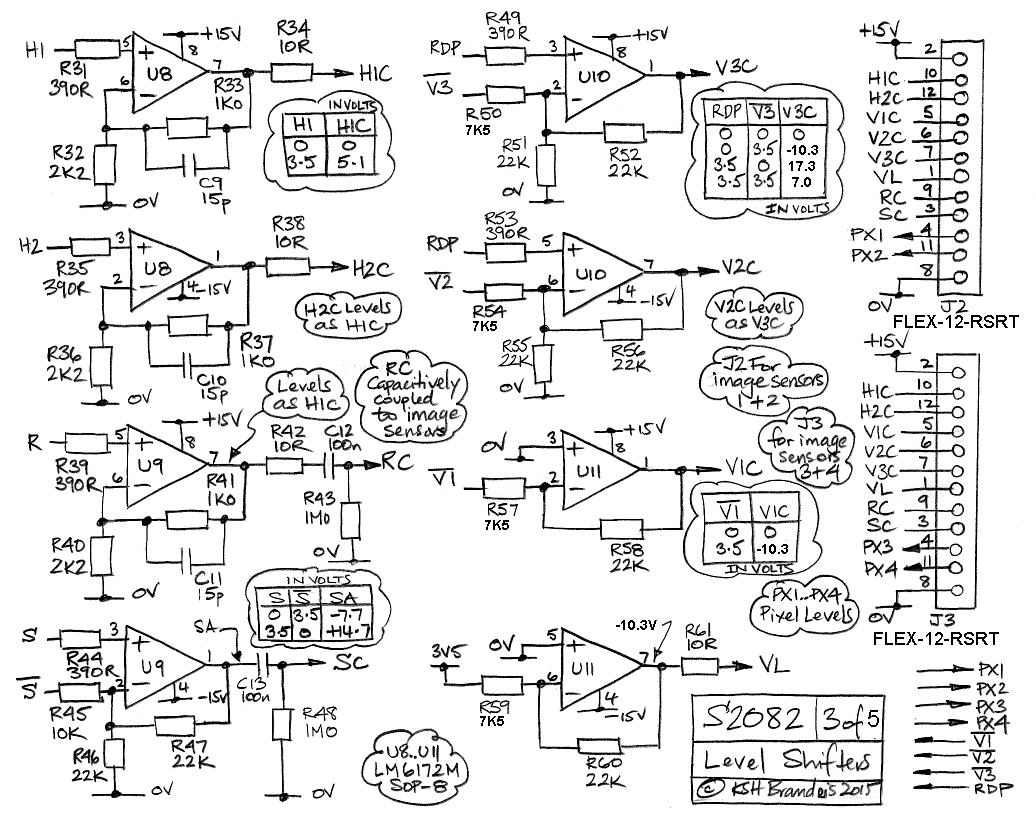 H1
R31
390R
5
6
+
-
U8
+15V
8
7
R33
1K0
R34
10R
H1C
R32
2K2
C9
15p
0V
IN VOLTS
H1 H1C
0 0
3.5 5.1
H2
R35
390R
3
2
+
-
U8
1
4
-15V
R38
10R
H2C
R37
1K0
R36
2K2
C10
15p
0V
H2C Levels
as H1C
Levels
as H1C
RC
Capacitively
coupled
to image
sensors
R
R39
390R
5
6
+
-
U9
+15V
8
7
R41
1K0
R42
10R
C12
100n
RC
R43
1M0
0V
R40
2K2
C11
15p
0V
IN VOLTS
S S̅ SA
0 3.5 -7.7
3.5 0 +14.7
S
R44
390R
S̅
R45
10K
3
2
+
-
U9
1
4
-15V
SA
C13
100n
SC
R48
1M0
0V
R46
22K
R47
22K
0V
U8..U11
LM6172M
SOP-8
RDP
R49
390R
V̅3̅
R50
7K5
3
2
+
-
U10
+15V
8
1
V3C
R51
22K
R52
22K
0V
RDP V̅3̅ V3C
0 0 0
0 3.5 -10.3
3.5 0 17.3
3.5 3.5 7.0
IN VOLTS
RDP
R53
390R
V̅2̅
R54
7K5
5
6
+
-
U10
7
4
-15V
V2C
R55
22K
R56
22K
0V
V2C Levels
as V3C
J2 For
image sensors
1+2
J3
for image
sensors
3+4
0V
V̅1̅
R57
7K5
3
2
+
-
U11
+15V
8
1
V1C
R58
22K
V̅1̅ V1C
0 0
3.5 -10.3
IN VOLTS
PX1..PX4
Pixel Levels
3V5
0V
R59
7K5
5
6
+
-
U11
-10.3V
7
4
-15V
R61
10R
VL
R60
22K
+15V
2
H1C 10
H2C 12
V1C 5
V2C 6
V3C 7
VL 1
RC 9
SC 3
PX1 4
PX2 11
8
0V
J2
FLEX-12-RSRT
+15V
2
H1C 10
H2C 12
V1C 5
V2C 6
V3C 7
VL 1
RC 9
SC 3
PX3 4
PX4 11
8
0V
J3
FLEX-12-RSRT
PX1
PX2
PX3
PX4
V̅1̅
V̅2̅
V̅3̅
RDP
S2082 3 of 5
Level Shifters
© KSH Brandeis 2015